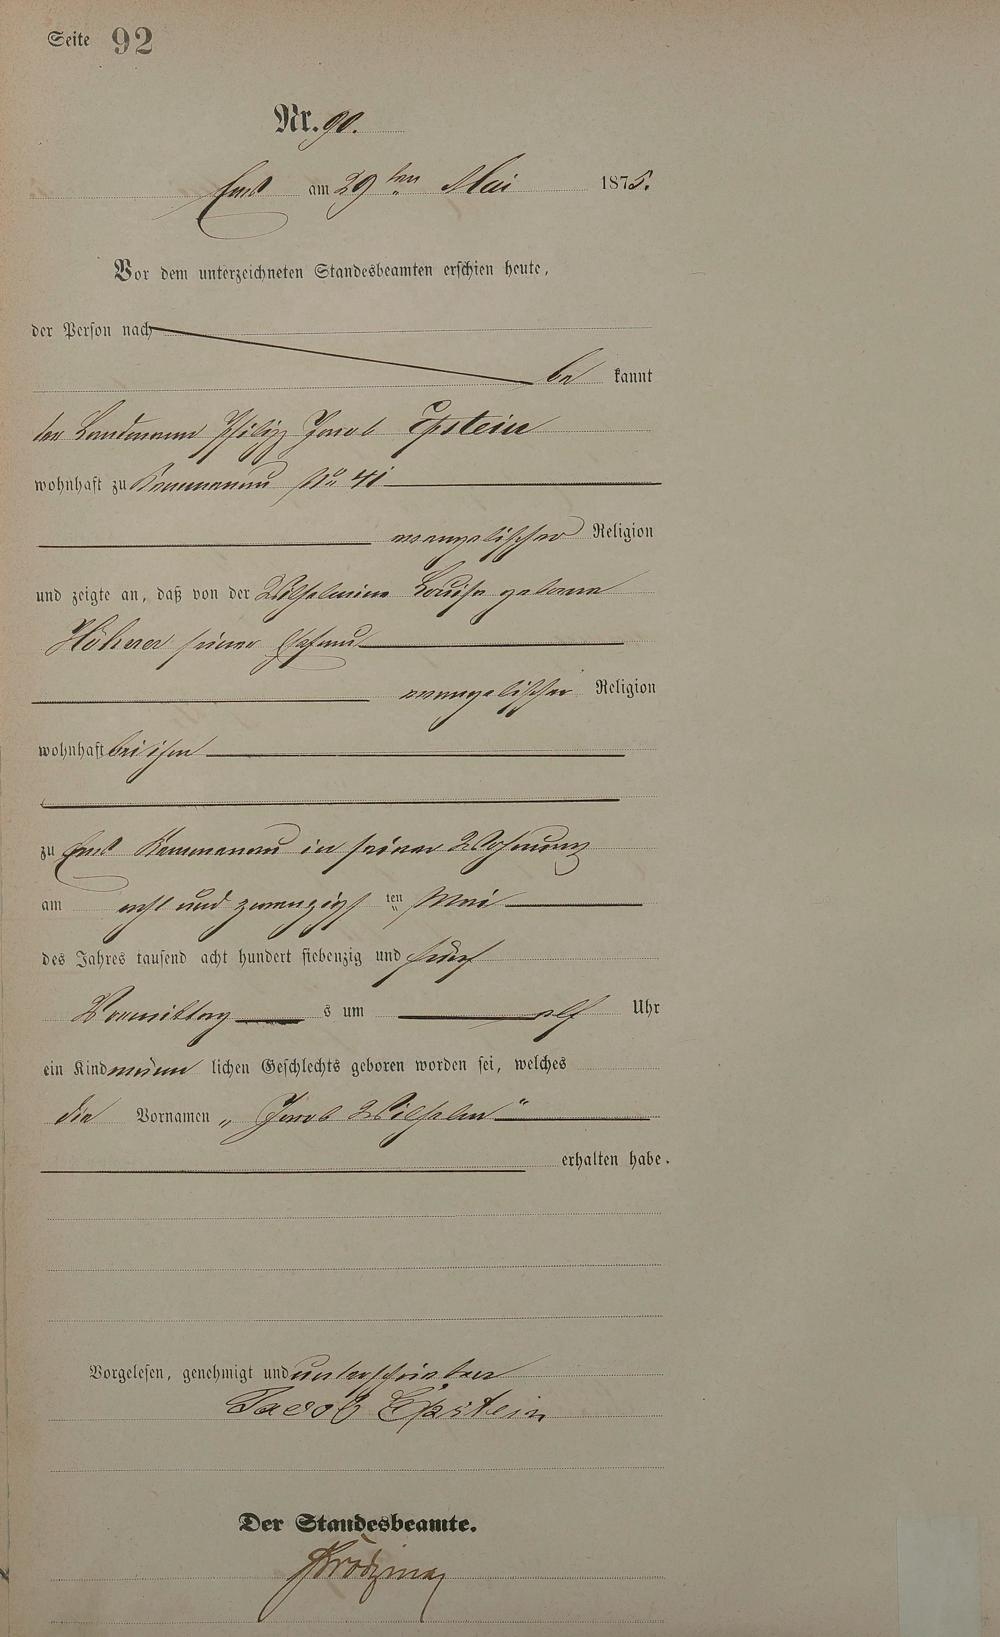 Seite 92
Nr. 90.
Ems am 29ten Mai 1875.
Vor dem unterzeichneten Standesbeamten erschien heute,
der Person nach
be kannt
der Landmann Philipp Jacob Epstein
wohnhaft zu Kemmenau No 41
evangelischer Religion
und zeigte an, daß von der Wilhelmine Louise geborne
Höhner seiner Ehefrau
evangelischer Religion
wohnhaft bei ihm
zu Ems Kemmenau in seiner Wohnung
am acht und zwanzigs ten Mai
des Jahres tausend acht hundert siebenzig und fünf
Vormittag s um elf Uhr
ein Kind männ lichen Geschlechts geboren worden sei, welches
die Vornamen „Jacob Wilhelm“
erhalten habe.
Vorgelesen, genehmigt und unterschrieben
Jacob Epstein
Der Standesbeamte.